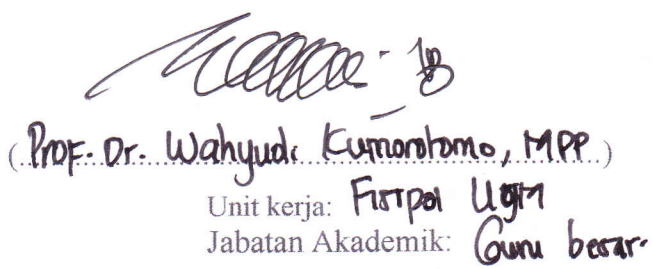 (Prof. Dr. Wahyudi Kumorotomo, MPP)
Unit kerja: Fisipol UGM
Jabatan Akademik: Guru besar.